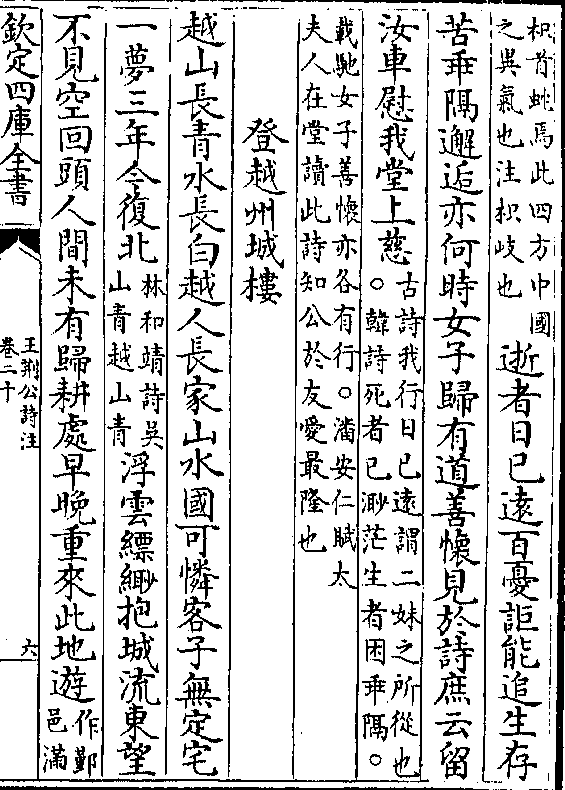 枳首蛇焉此四方中國
之異氣也注枳岐也
逝者日已遠百憂詎能追生存
苦乖隔邂逅亦何時女子歸有道善懷見於詩庶云留
汝車慰我堂上慈
古詩我行日已遠謂二妹之所從也
。韓詩死者已渺茫生者困乖隔。
載馳女子善懷亦各有行。潘安仁賦太
夫人在堂讀此詩知公於友愛最隆也
登越州城樓
越山長青水長白越人長家山水國可憐客子無定宅
一夢三年今復北
林和靖詩吳
山青越山青
浮雲縹緲抱城流東望
不見空回頭人間未有歸耕處早晚重來此地遊
作鄞
邑滿
欽定四庫全書
王荆公詩注
卷二十
六